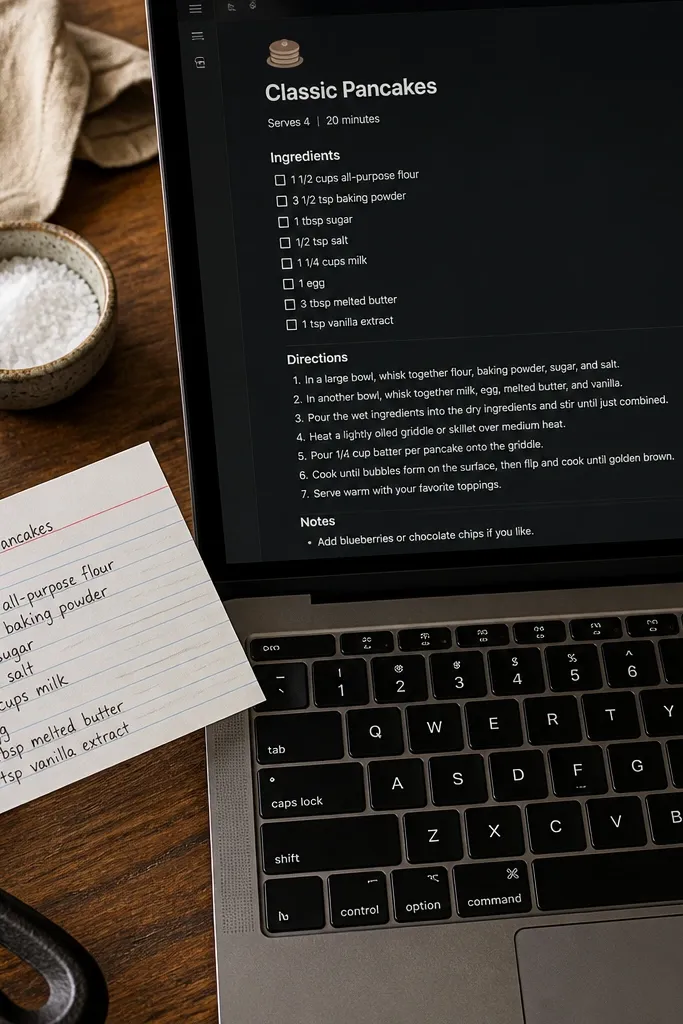 Classic Pancakes
Serves 4 | 20 minutes
Ingredients
1 1/2 cups all-purpose flour
3 1/2 tsp baking powder
1 tbsp sugar
1/2 tsp salt
1 1/4 cups milk
1 egg
3 tbsp melted butter
1 tsp vanilla extract
Directions
1. In a large bowl, whisk together flour, baking powder, sugar, and salt.
2. In another bowl, whisk together milk, egg, melted butter, and vanilla.
3. Pour the wet ingredients into the dry ingredients and stir until just combined.
4. Heat a lightly oiled griddle or skillet over medium heat.
5. Pour 1/4 cup batter per pancake onto the griddle.
6. Cook until bubbles form on the surface, then flip and cook until golden brown.
7. Serve warm with your favorite toppings.
Notes
• Add blueberries or chocolate chips if you like.
ancakes
all-purpose flour
baking powder
sugar
salt
cups milk
g
bsp melted butter
tsp vanilla extract
1 @ 2 # 3 $ 4 % 5 ^ 6
tab Q W E R T Y
caps lock A S D F G
shift Z X C V B
control option ⌘ command